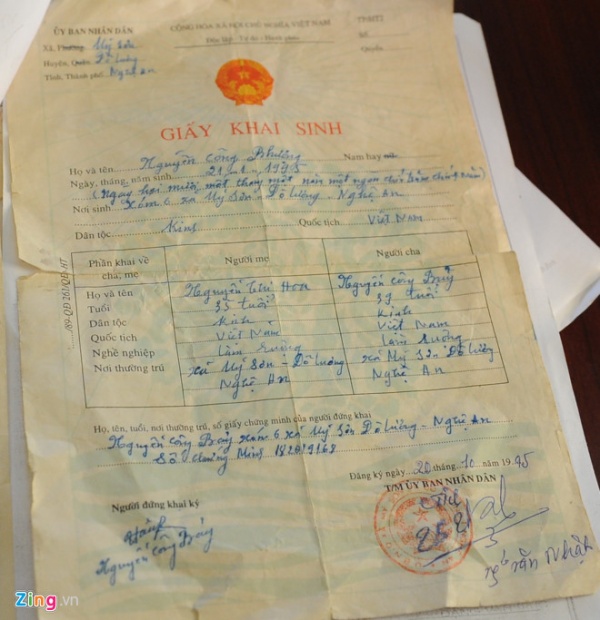 ỦY BAN NHÂN DÂN
CỘNG HÒA XÃ HỘI CHỦ NGHĨA VIỆT NAM
Xã, Phường: Mỹ Sơn
Độc lập - Tự do - Hạnh phúc
Số
Huyện, Quận: Đô Lương
Quyển
Tỉnh, Thành phố: Nghệ An
GIẤY KHAI SINH
Họ và tên Nguyễn Công Phượng Nam hay nữ
Ngày, tháng, năm sinh 21-1-1995
(Ngày hai mươi mốt tháng một năm một ngàn chín trăm chín năm)
Nơi sinh Xóm 6 xã Mỹ Sơn - Đô Lương - Nghệ An
Dân tộc Kinh Quốc tịch Việt Nam
Phần khai về cha, mẹ Người mẹ Người cha
Họ và tên Nguyễn Thị Hoa Nguyễn Công Bảy
Tuổi 33 tuổi 39 tuổi
Dân tộc Kinh Kinh
Quốc tịch Việt Nam Việt Nam
Nghề nghiệp Làm ruộng Làm ruộng
Nơi thường trú xã Mỹ Sơn - Đô Lương xã Mỹ Sơn Đô Lương
Nghệ An Nghệ An
Họ, tên, tuổi, nơi thường trú, số giấy chứng minh của người đứng khai
Nguyễn Công Bảy xóm 6 xã Mỹ Sơn Đô Lương - Nghệ An
Số chứng Minh
Đăng ký ngày 20 tháng 10 năm 1995
T/M ỦY BAN NHÂN DÂN
Người đứng khai ký
Nguyễn Công Bảy
Zing.vn